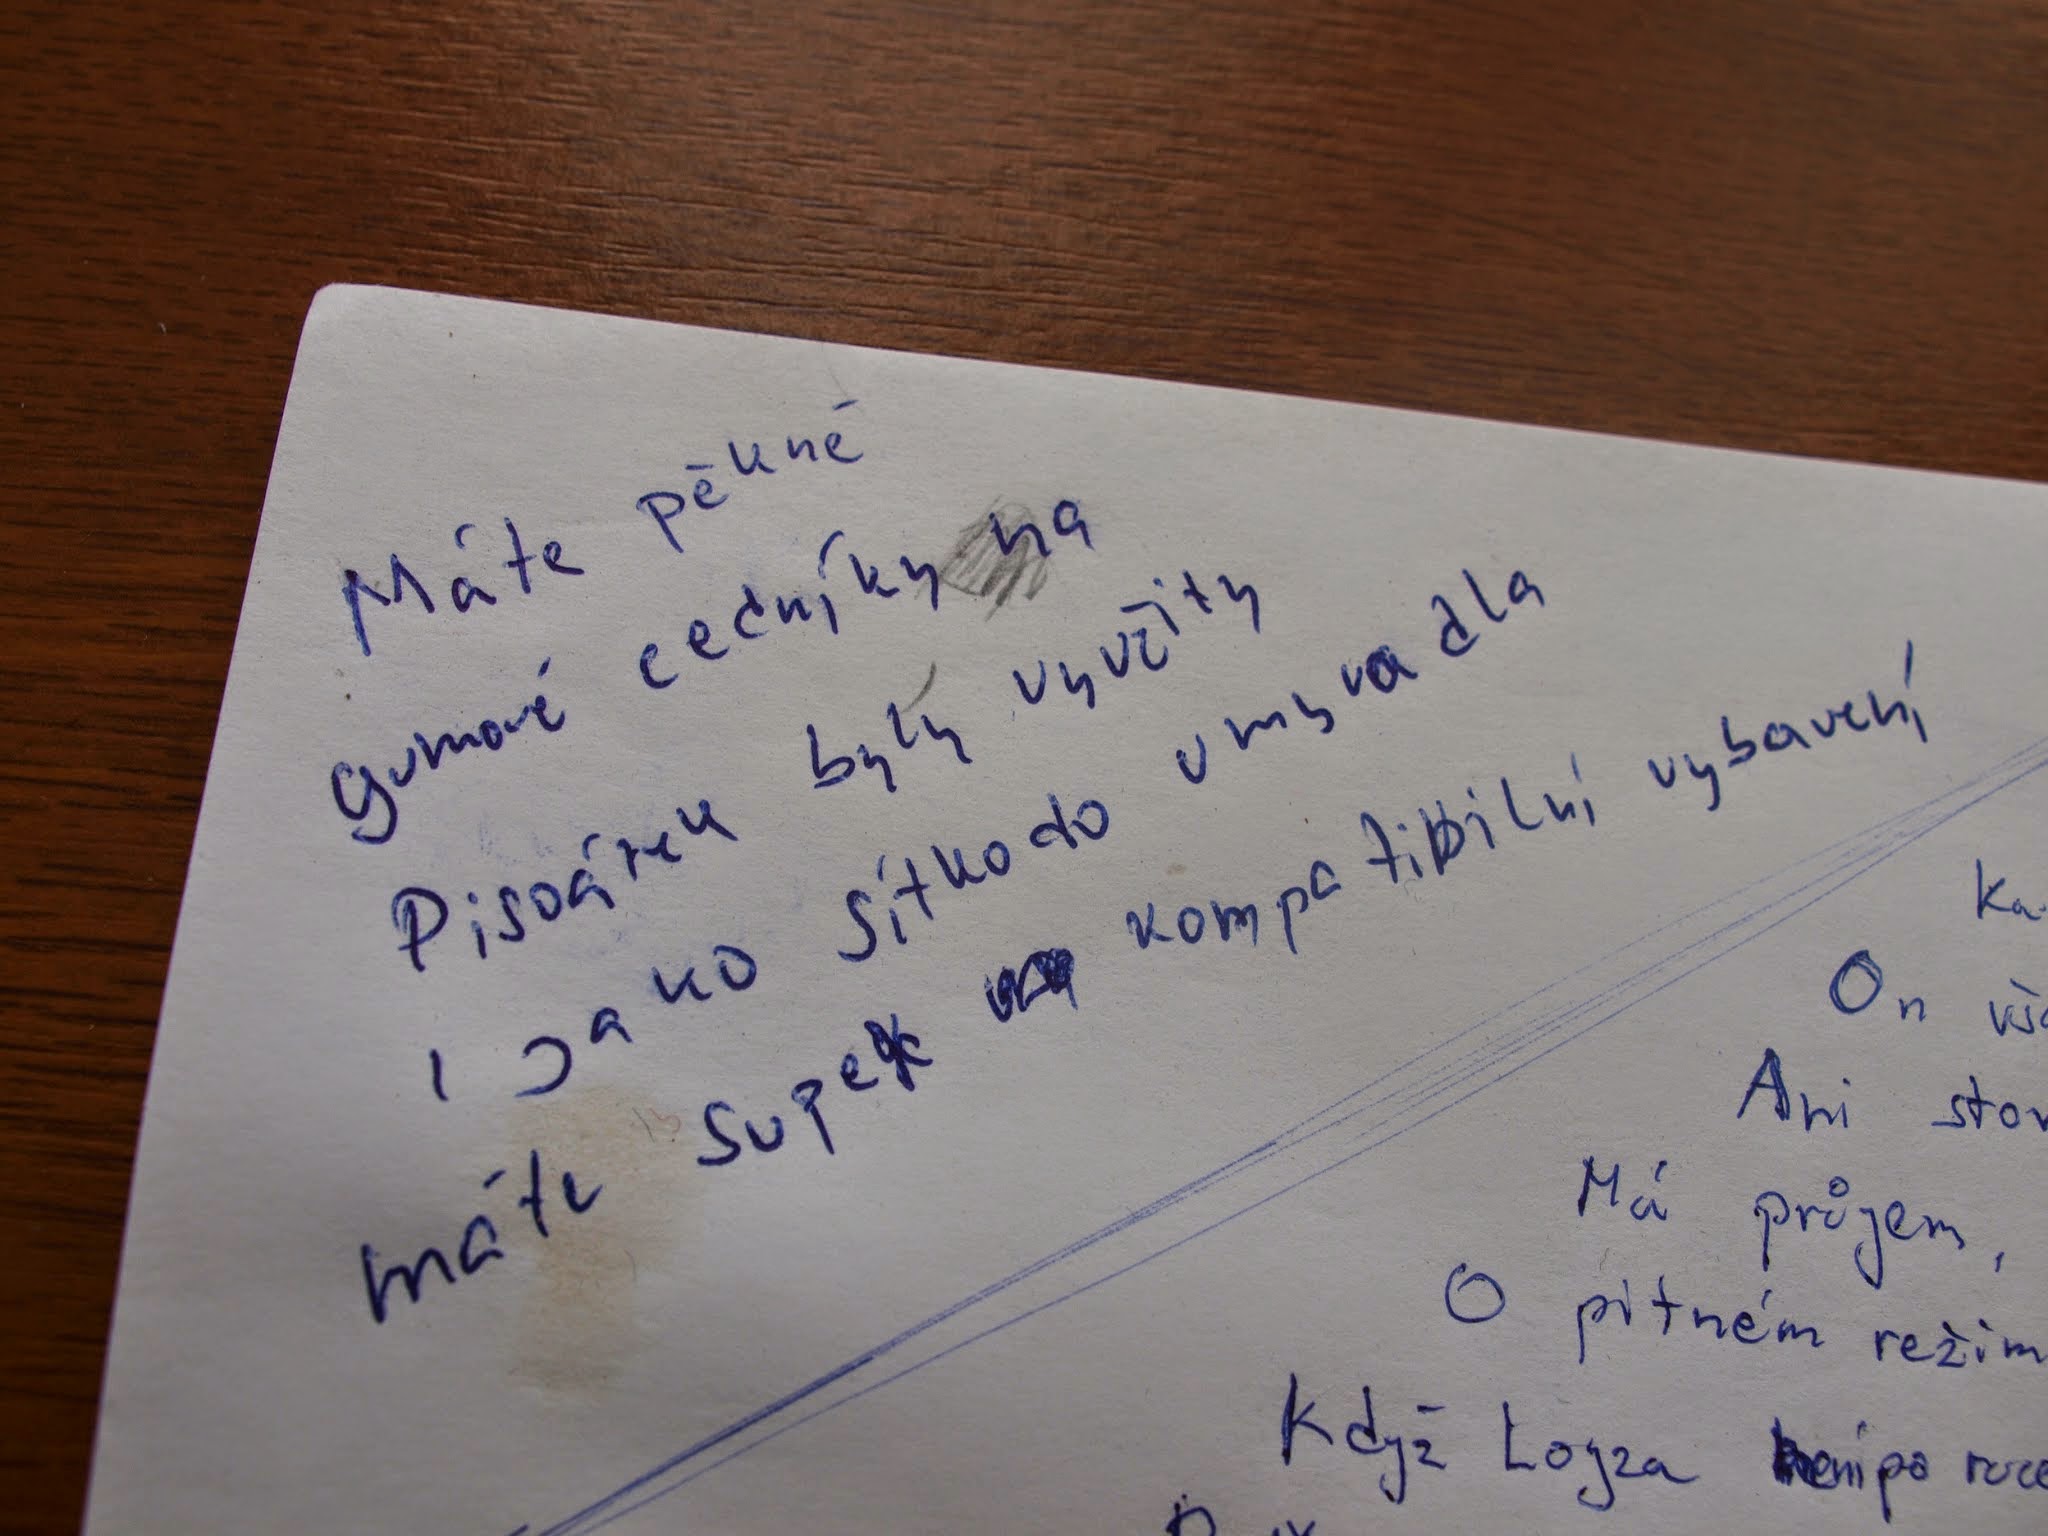 Máte pěkné
gumové cedníky na
Pisoárek byly využity
i jako sítko do umyvadla
máte super kompatibilní vybavení
On
Ani
Má průjem,
O pitném režim
Když Lojza není po ruce